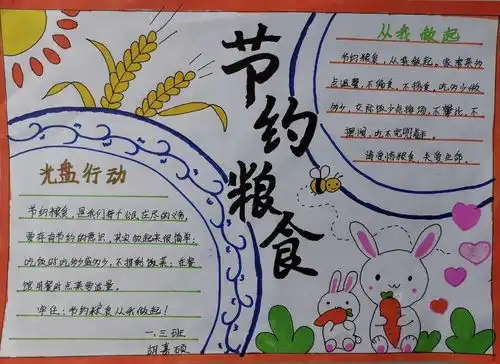 节约粮食
从我做起
节约粮食，从我做起，家常菜的
点温馨，不偏食，不挑食，吃多少做
多少，交际低少点排场，不攀比，不
摆阔，吃不完
请爱惜粮食，关爱生命。
光盘行动
节约粮食，是我们每个公民应尽的义务，
要存有节约的意识，其实做起来很简单：
吃饭时吃多少盛多少，不摆剩饭菜；在餐
馆用餐时点菜要适量。
牢住：节约粮食从我做起！
一.三班
胡嘉硕